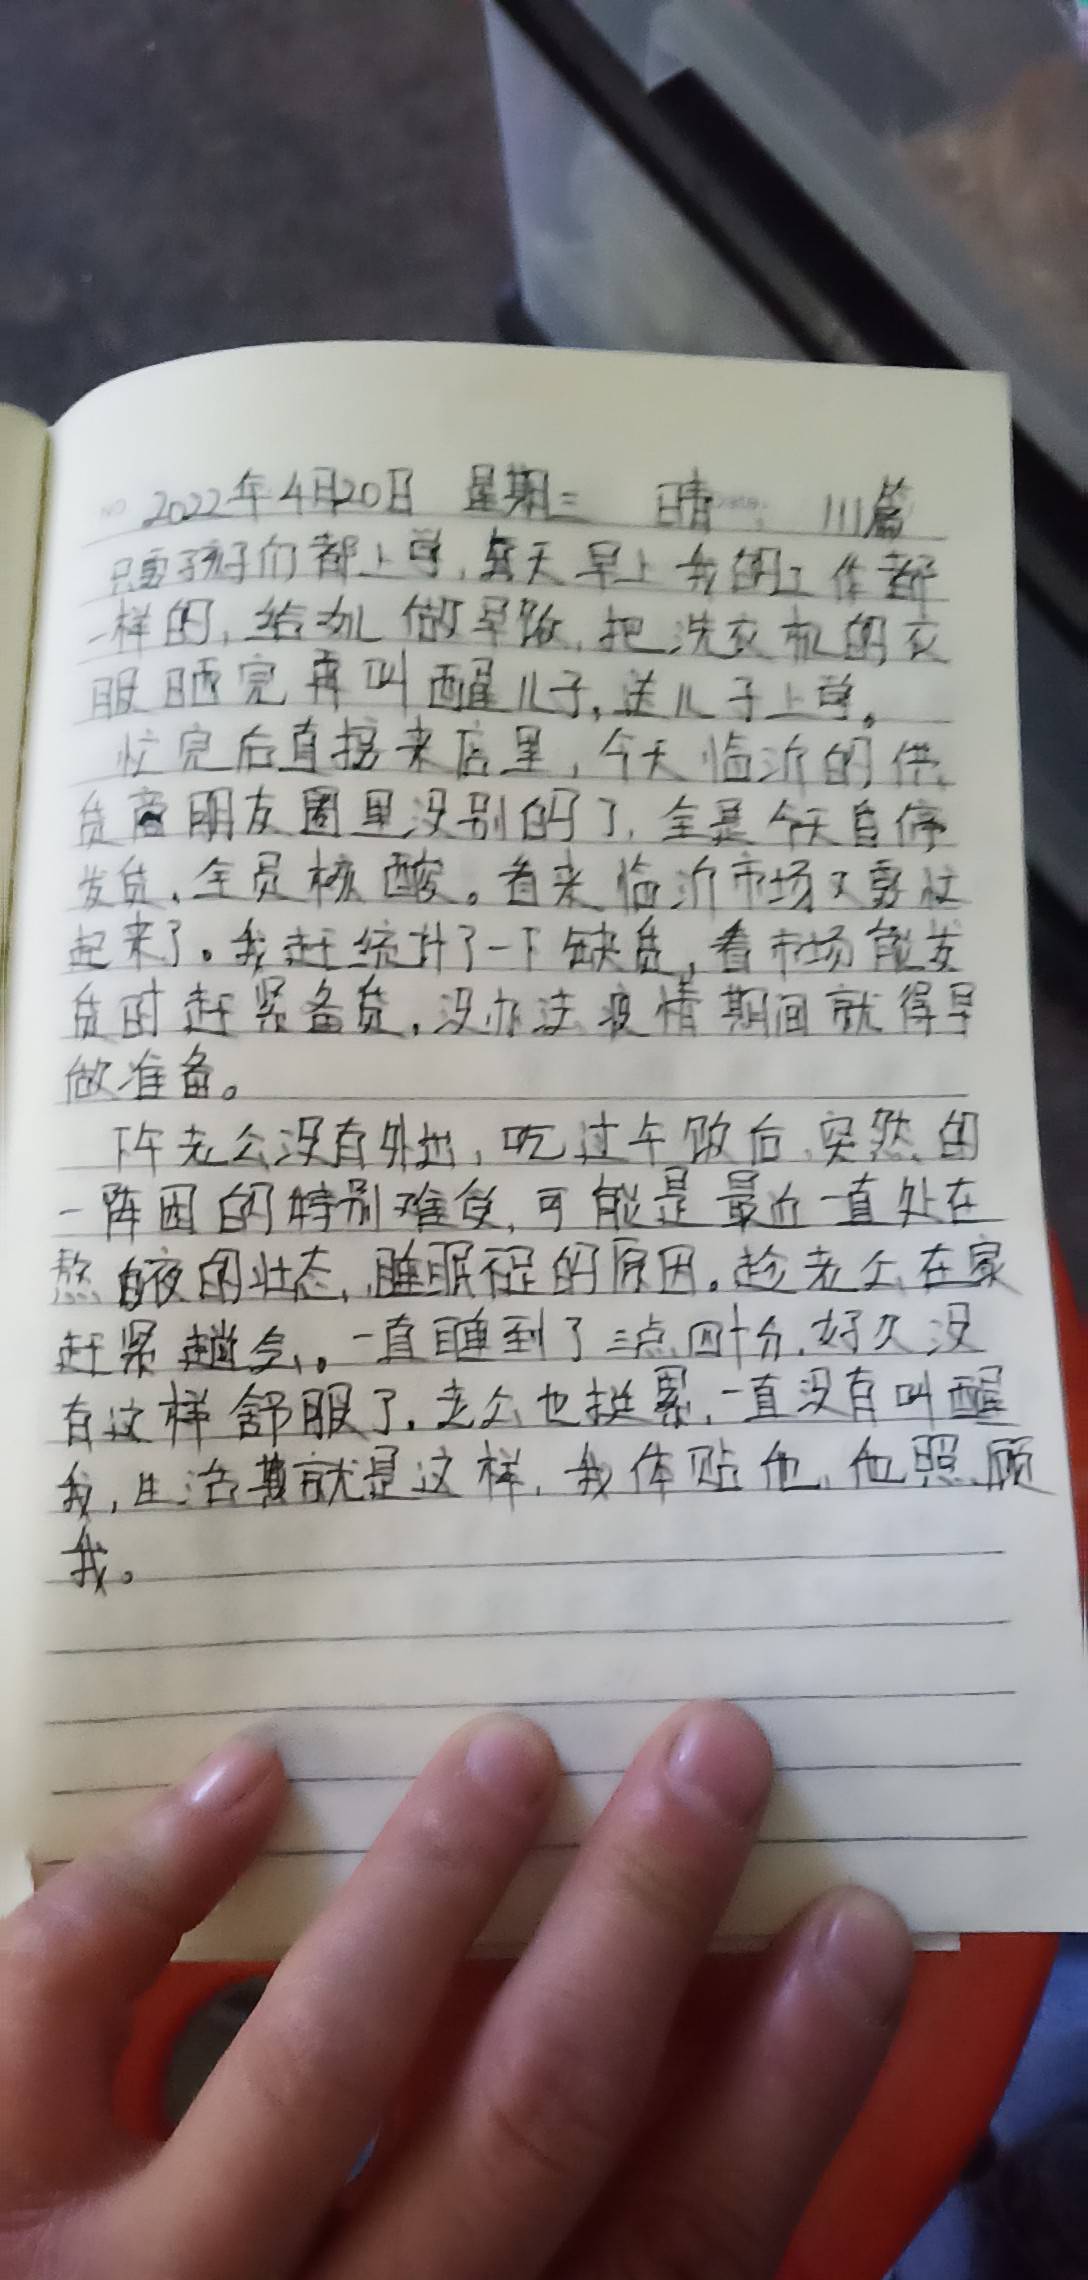 2022年4月20日 星期三 晴 111篇
只要孩子们都上学，每天早上我的工作都
一样的，给幼儿做早饭，把洗衣机的衣
服晒完再叫醒儿子，送儿子上学。
忙完后直接来店里，今天临沂的供
货商朋友圈里没别的了，全是今天自停
发货，全员核酸。看来临沂市场又要忙
起来了。我赶统计了一下缺货，看市场能发
货时赶紧备货，没办法疫情期间就得早
做准备。
下午老公没有外出，吃过午饭后，突然的
一阵困的特别难受，可能是最近一直处在
熬夜的状态，睡眠不足的原因。趁老公在家
赶紧趟会。一直睡到了三点四十分，好久没
有这样舒服了，老公也挺累，一直没有叫醒
我，生活其就是这样，我体贴他，他照顾
我。